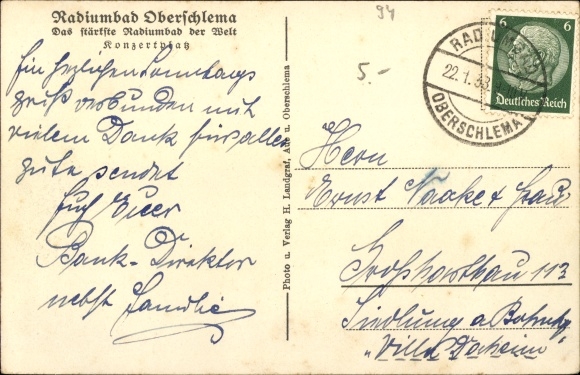 Radiumbad Oberschlema
Das stärkste Radiumbad der Welt
Konzertplatz
94
5.-
Ein herzlichen Sonntags
gruß verbunden mit
vielem Dank für alles
gute sendet
Euer
Bank-Direktor
nebst Familie
Photo u. Verlag H. Landgraf, Aue u. Oberschlema
6 6
Deutsches Reich
RADIUMBAD
22.1.38
OBERSCHLEMA
Herrn
Ernst Naake u Frau
Großharthau 113
Siedlung a Bahnhf
"Villa Daheim"